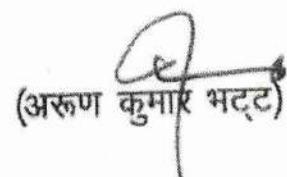 (अरूण कुमार भट्ट)